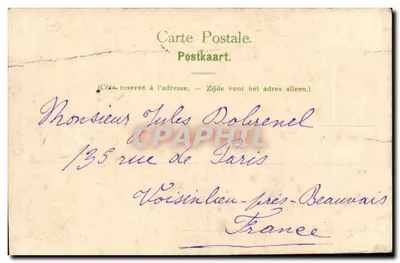 Carte Postale.
Postkaart.
(Côté reservé à l'adresse. — Zijde voor het adres alleen.)
Monsieur Jules Dobrenel
CPAPHIL
135 rue de Paris
Voisinlieu-près-Beauvais
France